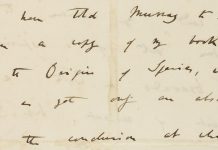 have told Murray to
a copy of my book
the Origin of Species,
as yet only an abs
the conclusion at